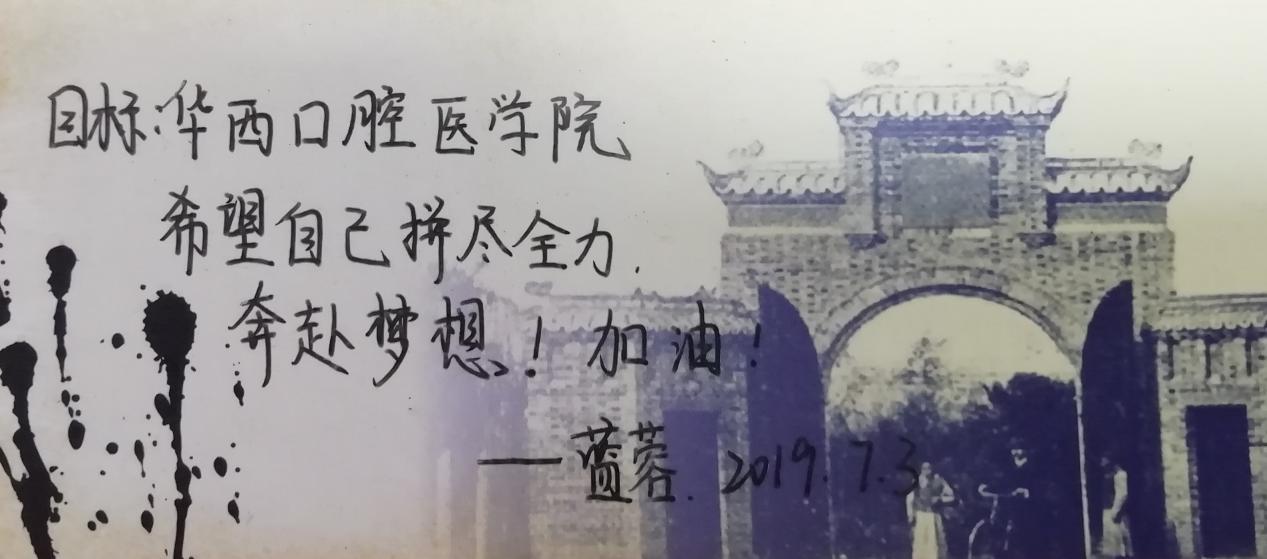 目标:华西口腔医学院
希望自己拼尽全力.
奔赴梦想!加油!
——蓝蓉. 2019.7.3